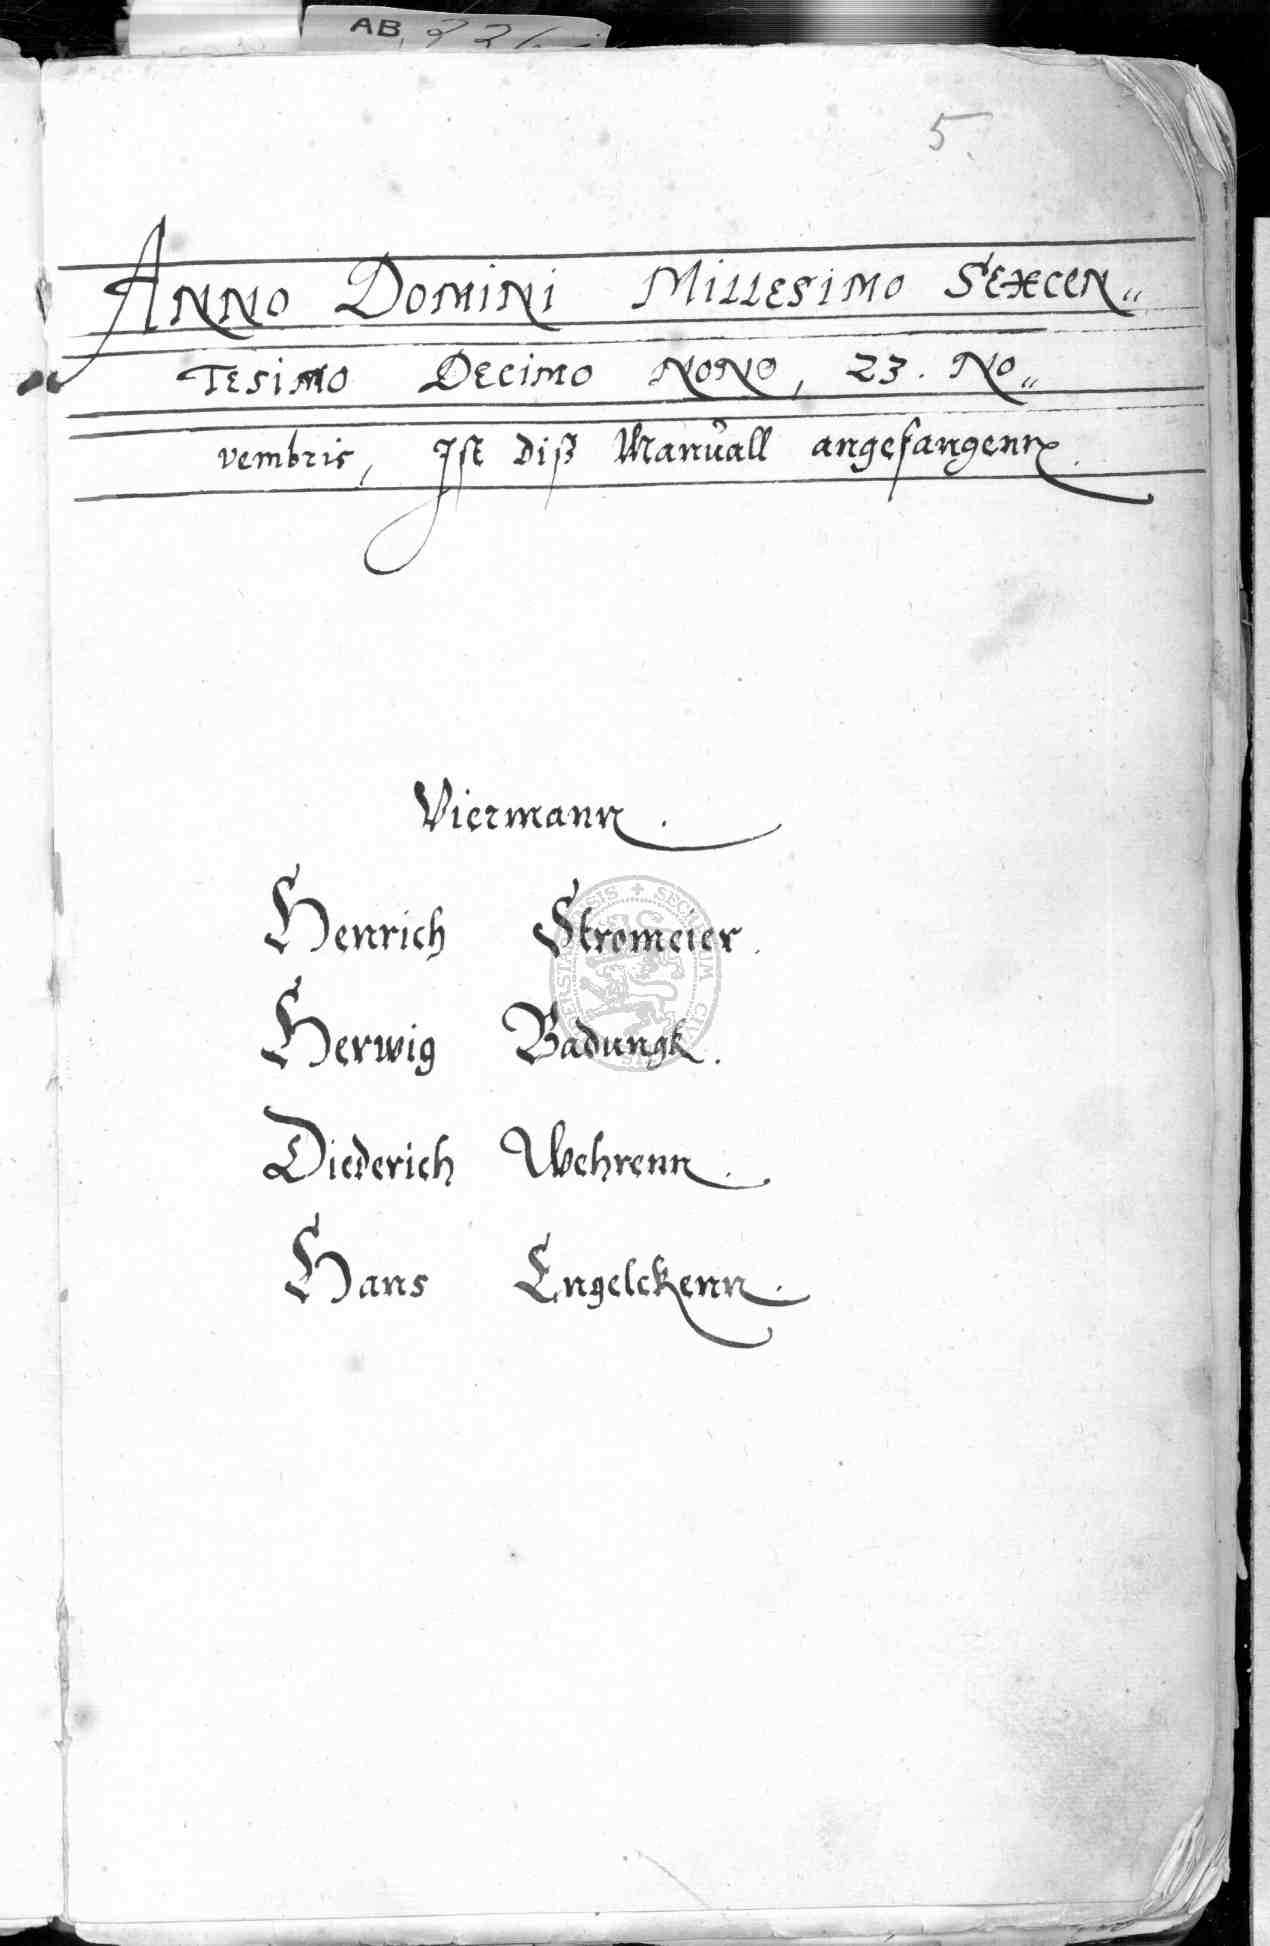 AB
5.
Anno Domini Millesimo Sexcen„
Tesimo Decimo Nono, 23. No„
vembris, Ist diß Manuall angefangenn.
Viermann.
Henrich Stromeier.
Herwig Badungk.
Diederich Wehrenn.
Hans Engelckenn.